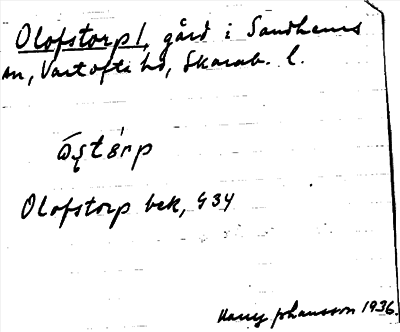 Olofstorp 1, gård i Sandhems
sn, Vartofta hd, Skarab. l.
Olofstorp bek, G34
Harry Johansson 1936.